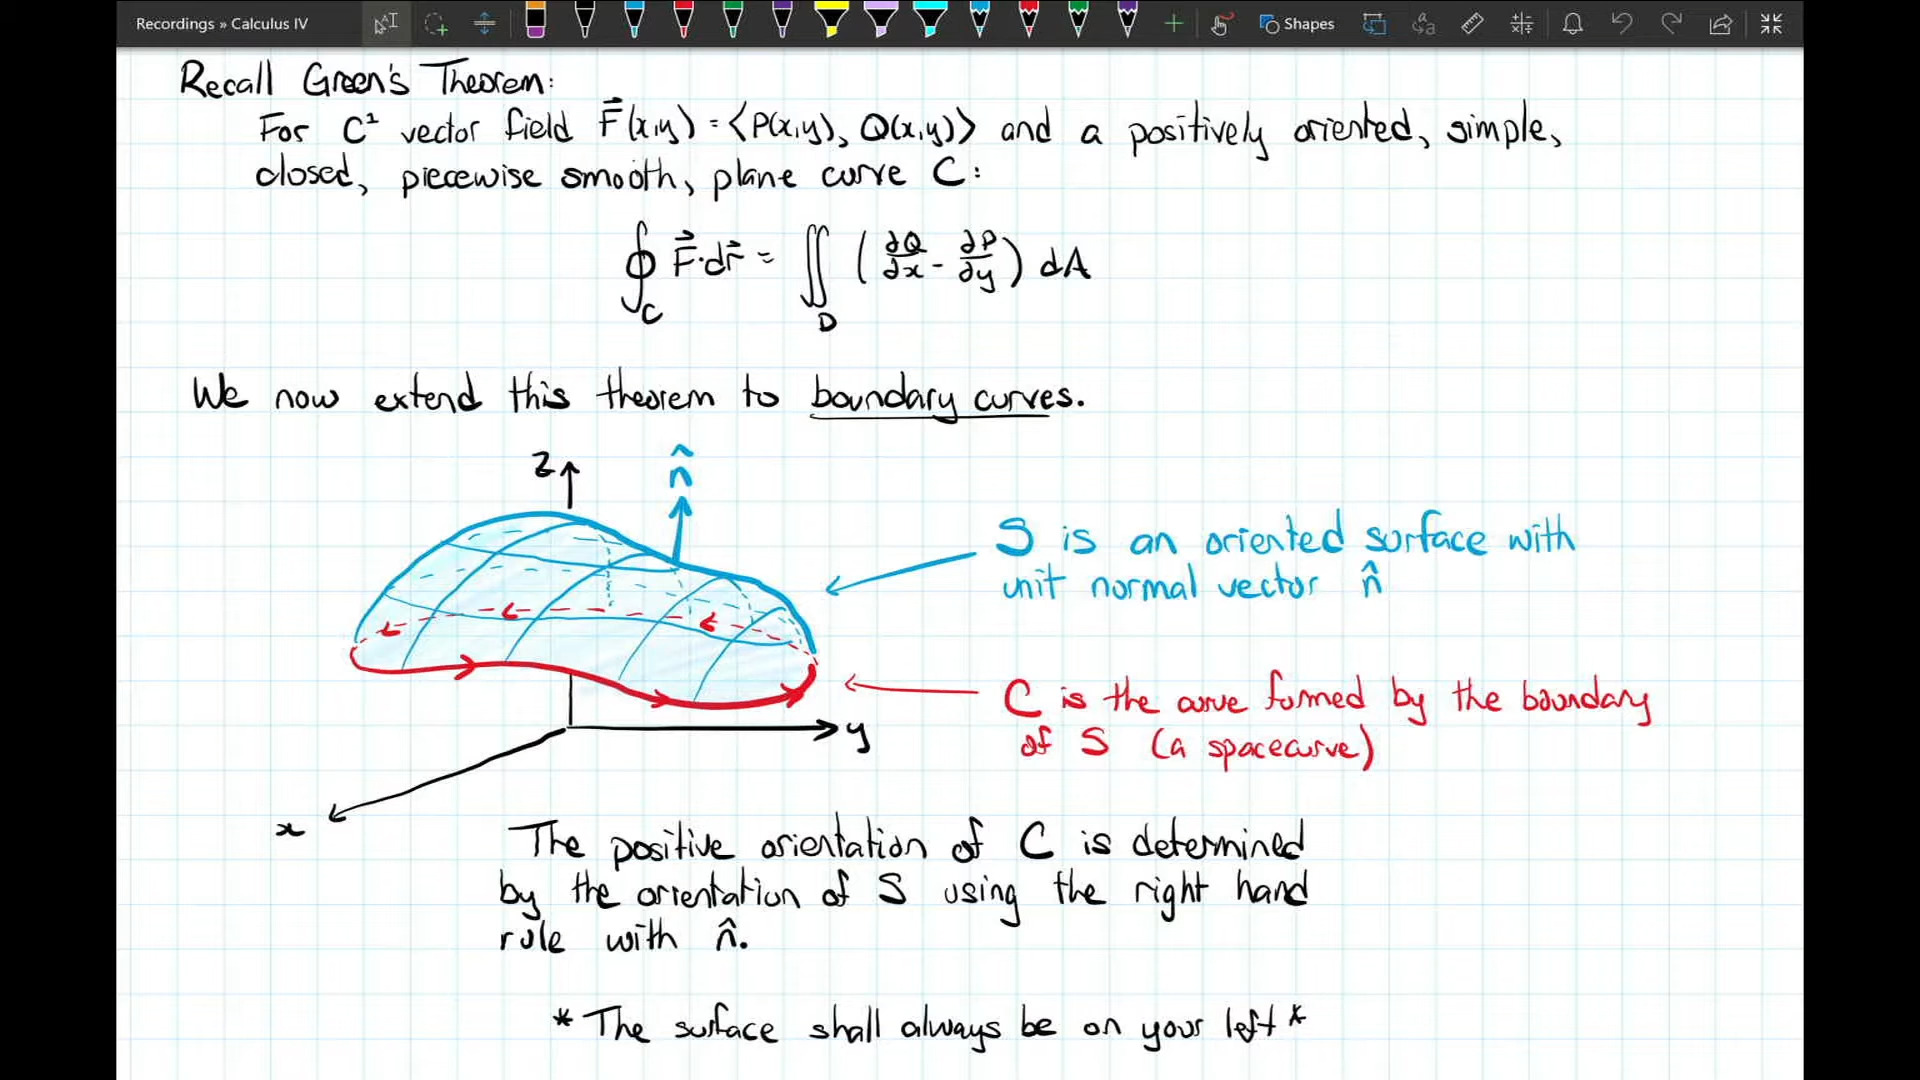 Recordings » Calculus IV
Shapes
Recall Green's Theorem:
For C¹ vector field F⃗(x,y) = ⟨P(x,y), Q(x,y)⟩ and a positively oriented, simple,
closed, piecewise smooth, plane curve C:
∮_C F⃗·dr⃗ = ∬_D (∂Q/∂x - ∂P/∂y) dA
We now extend this theorem to boundary curves.
z
n̂
S is an oriented surface with
unit normal vector n̂
C is the curve formed by the boundary
of S (a spacecurve)
y
x
The positive orientation of C is determined
by the orientation of S using the right hand
rule with n̂.
* The surface shall always be on your left *